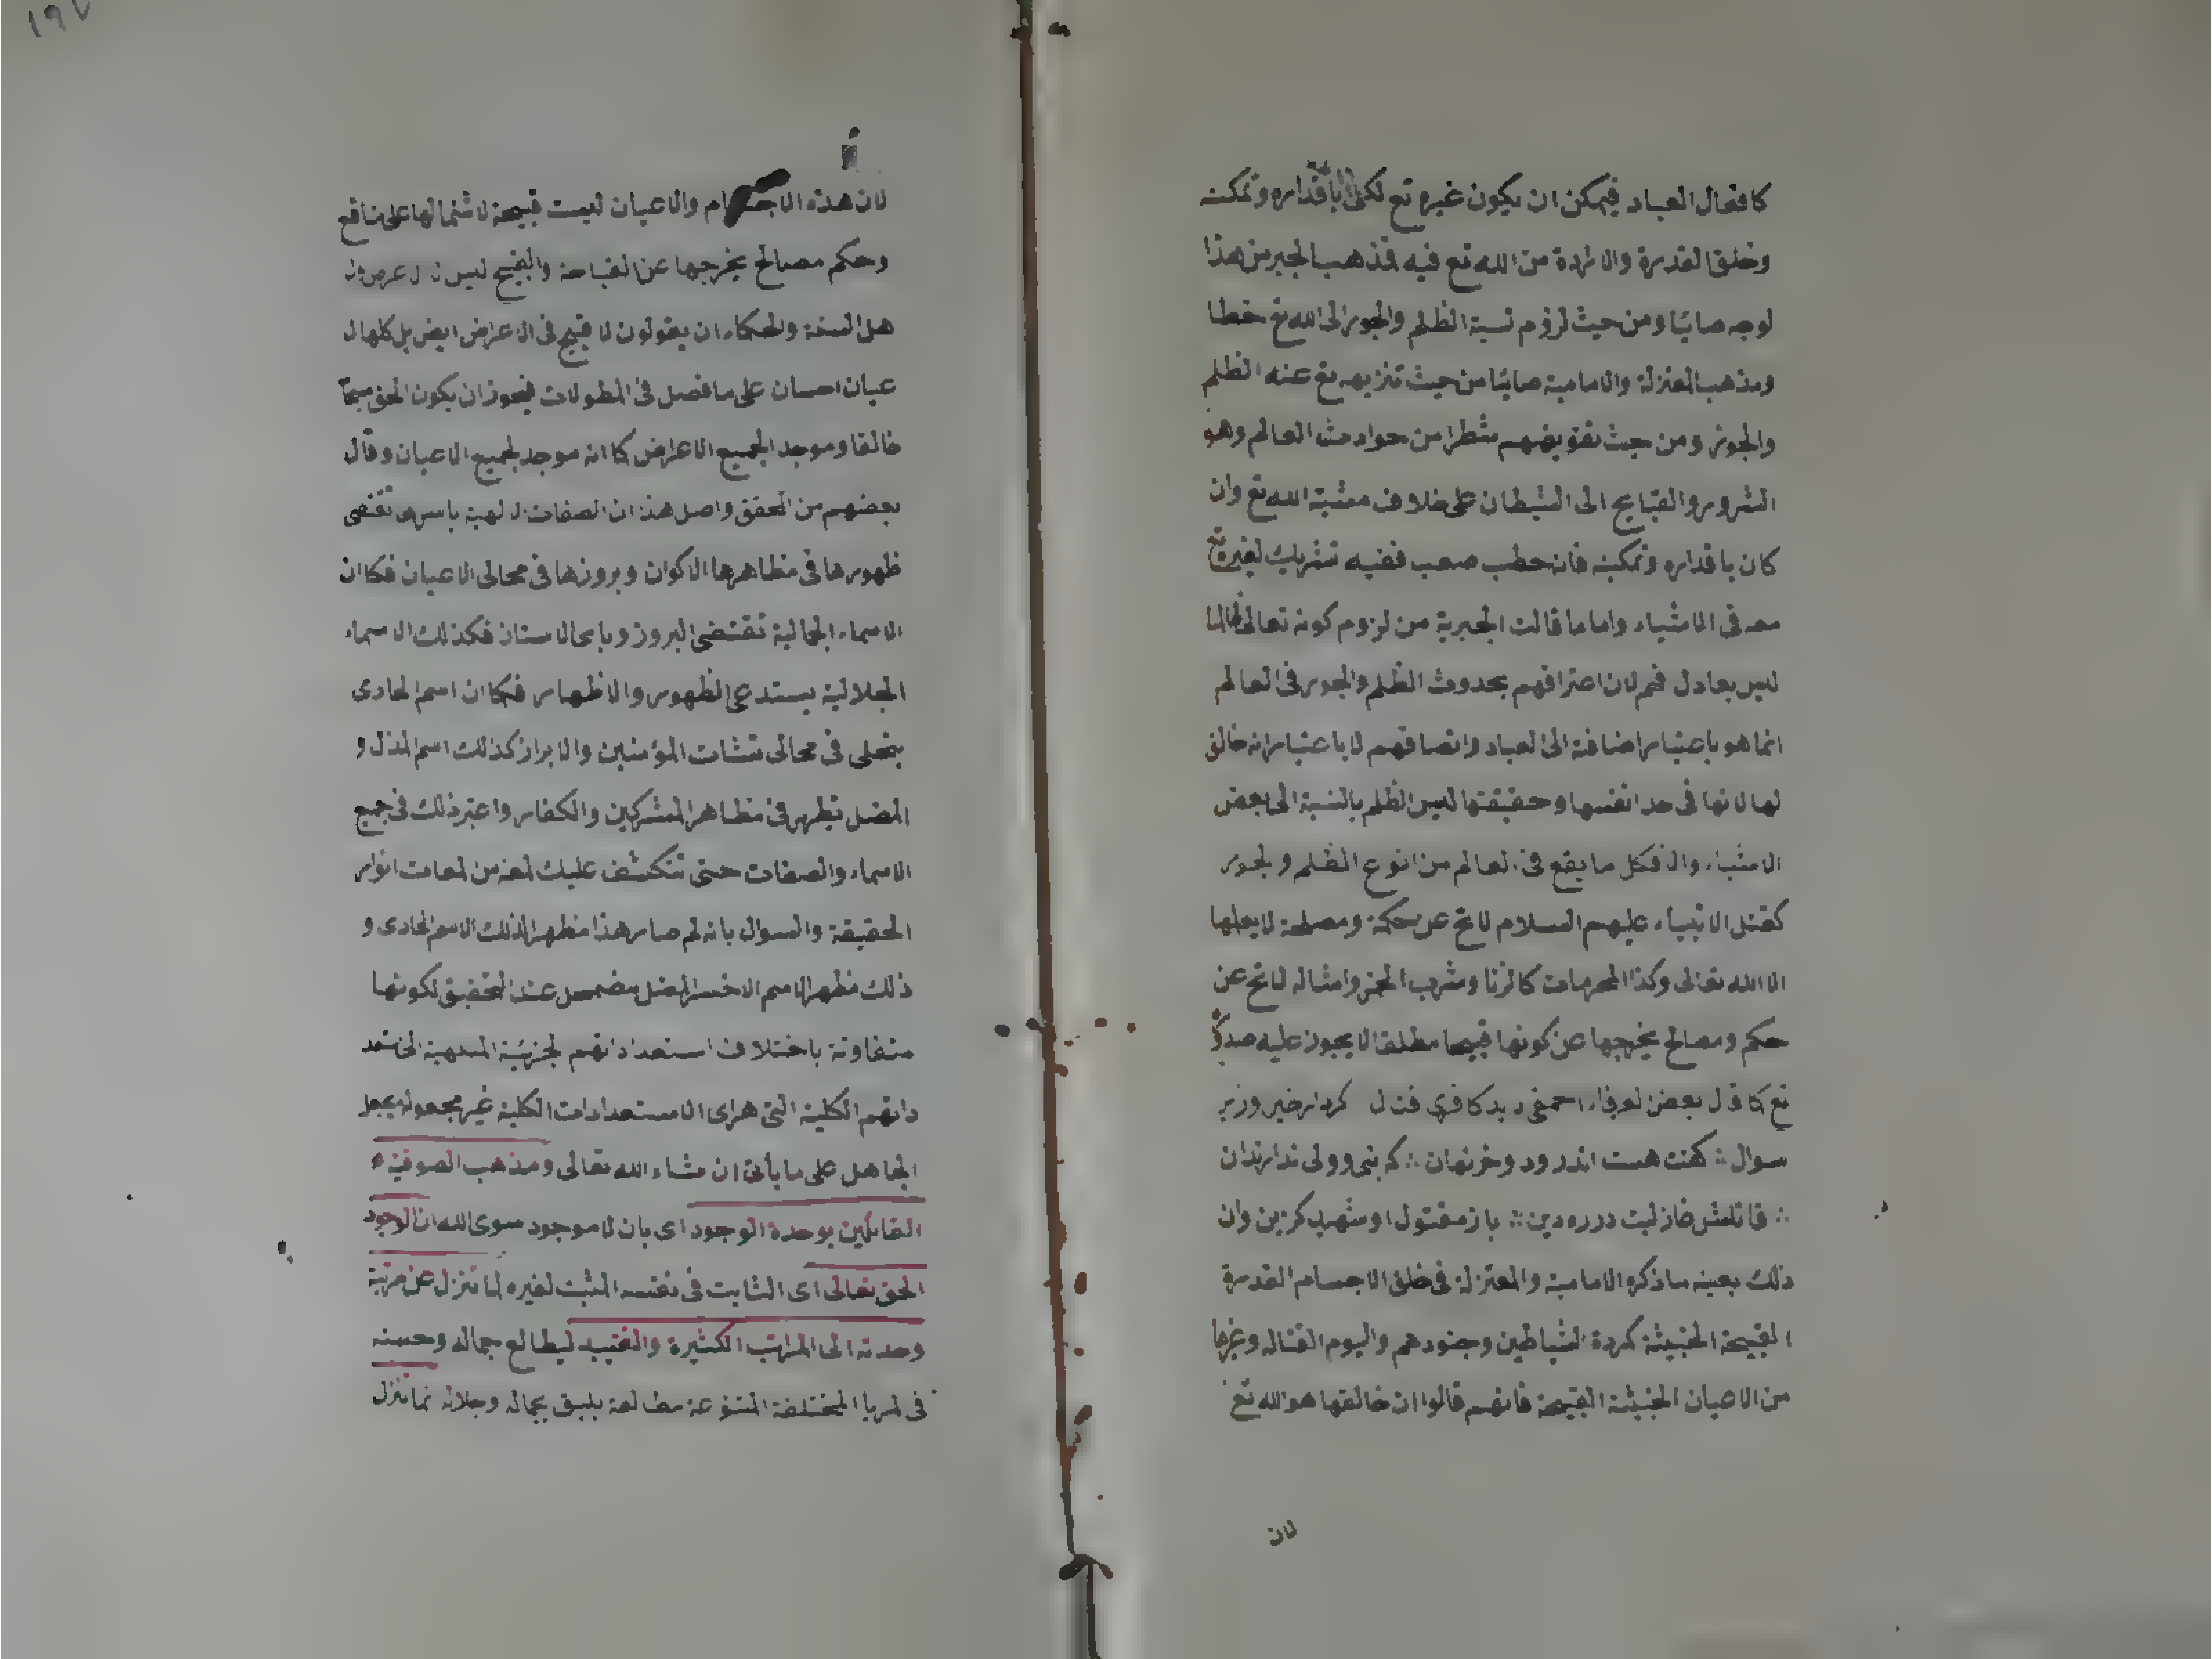 كافعال العباد فيمكن ان يكون غيره تع لكن باقداره وتمكنه
وخلق القدرة والارادة من الله تع فيه فذهب الجبر من هذا
لوجه صائبا ومن حيث لزوم نسبة الظلم والجور الى الله تع خطا
ومذهب المعتزلة والامامية صائبا من حيث تنزيهه تع عنه الظلم
والجور ومن حيث تفويضهم شطرا من حوادث العالم وهو
الشرور والقبايح الى الشيطان على خلاف مشية الله تع وان
كان باقداره وتمكينه فانه خطب صعب ففيه تشريك لغيره تع
معه فى الاشياء واما ما قالت الجبرية من لزوم كونه تعالى ظالما
ليس بعادل فم لان اعترافهم بحدوث الظلم والجور فى العالم
انما هو باعتبار اضافته الى العباد واتصافهم لا باعتبار انه خالق
لها لانها فى حد انفسها وحقيقتها ليس الظلم بالنسبة الى بعض
الاشياء والا فكل ما يقع فى العالم من انوع الظلم ولجور
كقتل الانبياء عليهم السلام لا يخ عن حكمة ومصلحة لا يعلمها
الا الله تعالى وكذا المحرمات كالزنا وشرب الخمر وامثاله لا يخ عن
حكم ومصالح يخرجها عن كونها قبيحا مطلقا لا يجوز عليه صدوره
تع كما قال بعض لعرفاء احمقى ديد كافرى قتال كرد از خير وز پير
سوال ∴ كفت هست اندر ود وخر نهان ∴ كه نبى وولى ندارند ان
∴ قاتلش غازيست در ره دين ∴ باز مقتول او شهيد كزين وان
ذلك بعينه ما ذكره الامامية والمعتزلة فى خلق الاجسام القذرة
القبيحة الخبيثة كمردة الشياطين وجنودهم واليوم القتاله وغيرها
من الاعيان الخبيثة القبيحة فانهم قالوا ان خالقها هو الله تع
لان
١٩٧
لان هذه الاجسام والاعيان ليست قبيحة لاشتمالها على منافع
وحكم مصالح يخرجها عن القباحة والقبيح ليس
هل السنة والحكماء ان يقولون لا قبيح فى الاعراض ايض بل كلها كا
عيان احسان على ما فصل فى المطولات فيجوز ان يكون الحق سبحا
خالقا وموجد الجميع الاعراض كما انه موجد لجميع الاعيان وقال
بعضهم من المحقق واصل هذ ان الصفات لالهية باسرها تقتضى
ظهورها فى مظاهرها الاكوان وبروزها فى مجالى الاعيان فكما ان
الاسماء الجمالية تقتضى البروز ويابى الاستتار فكذلك الاسماء
الجلالية يستدعى الظهور والاظهار فكما ان اسم الهادى
يتجلى فى مجالى نشات المؤمنين والابرار كذلك اسم المذل و
المضل تظهر فى مظاهر المشركين والكفار واعتبر ذلك فى جميع
الاسماء والصفات حتى تنكشف عليك لمعة من لمعات انوار
الحقيقة والسوال بانه لم صار هذا مظهرا لذلك الاسم الهادى و
ذلك مظهرا لاسم الاخر المضل مضمحل عند التحقيق لكونها
متفاوتة باختلاف استعداداتهم لجزئية المنتهية الى استعد
داتهم الكلية التى هى اى الاستعدادات الكلية غير مجعوله بجعل
الجاهل على ما يأتى ان شاء الله تعالى ومذهب الصوفية
القائلين بوحدة الوجود اى بان لا موجود سوى الله ان الوجود
الحق تعالى اى الثابت فى نفسه المثبت لغيره لما تنزل عن مرتبة
وحدته الى المراتب الكثيرة والتقييد ليطالع جماله وحسنه
فى لمرايا المختلفة المتنوعة مطالعة يليق بجماله وجلاله نما تنزل